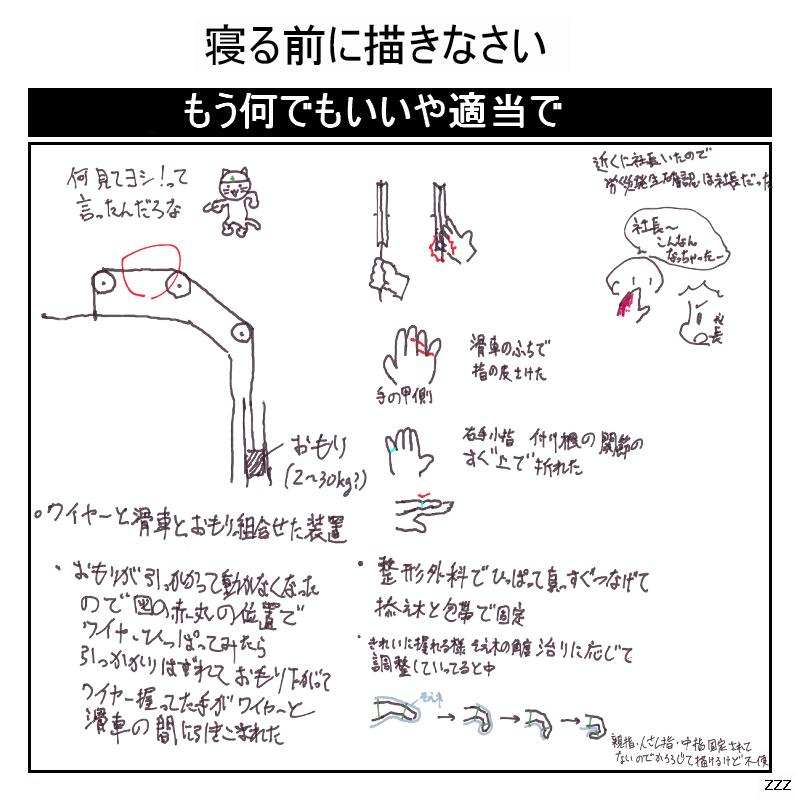 寝る前に描きなさい
もう何でもいいや適当で
何見てヨシ!って
言ったんだろな
近くに社長いたので
労災発生確認は社長だった
社長〜
こんなん
なっちゃったー
社長
滑車のふちで
指の皮さけた
手の甲側
右手小指 付け根の関節の
すぐ上で折れた
おもり
(2〜30kg?)
○ワイヤーと滑車とおもり組合せた装置
・おもりが引っかかって動かなくなった
ので図の赤丸の位置で
ワイヤーひっぱってみたら
引っかかりはずれておもり下がって
ワイヤー握ってた手がワイヤーと
滑車の間に引きこまれた
・整形外科でひっぱって真っすぐつなげて
添え木と包帯で固定
・きれいに握れる様 そえ木の角度 治りに応じて
調整していってると中
そえ木
親指・人さし指・中指固定されて
ないのでかろうじて描けるけど不便
zzz